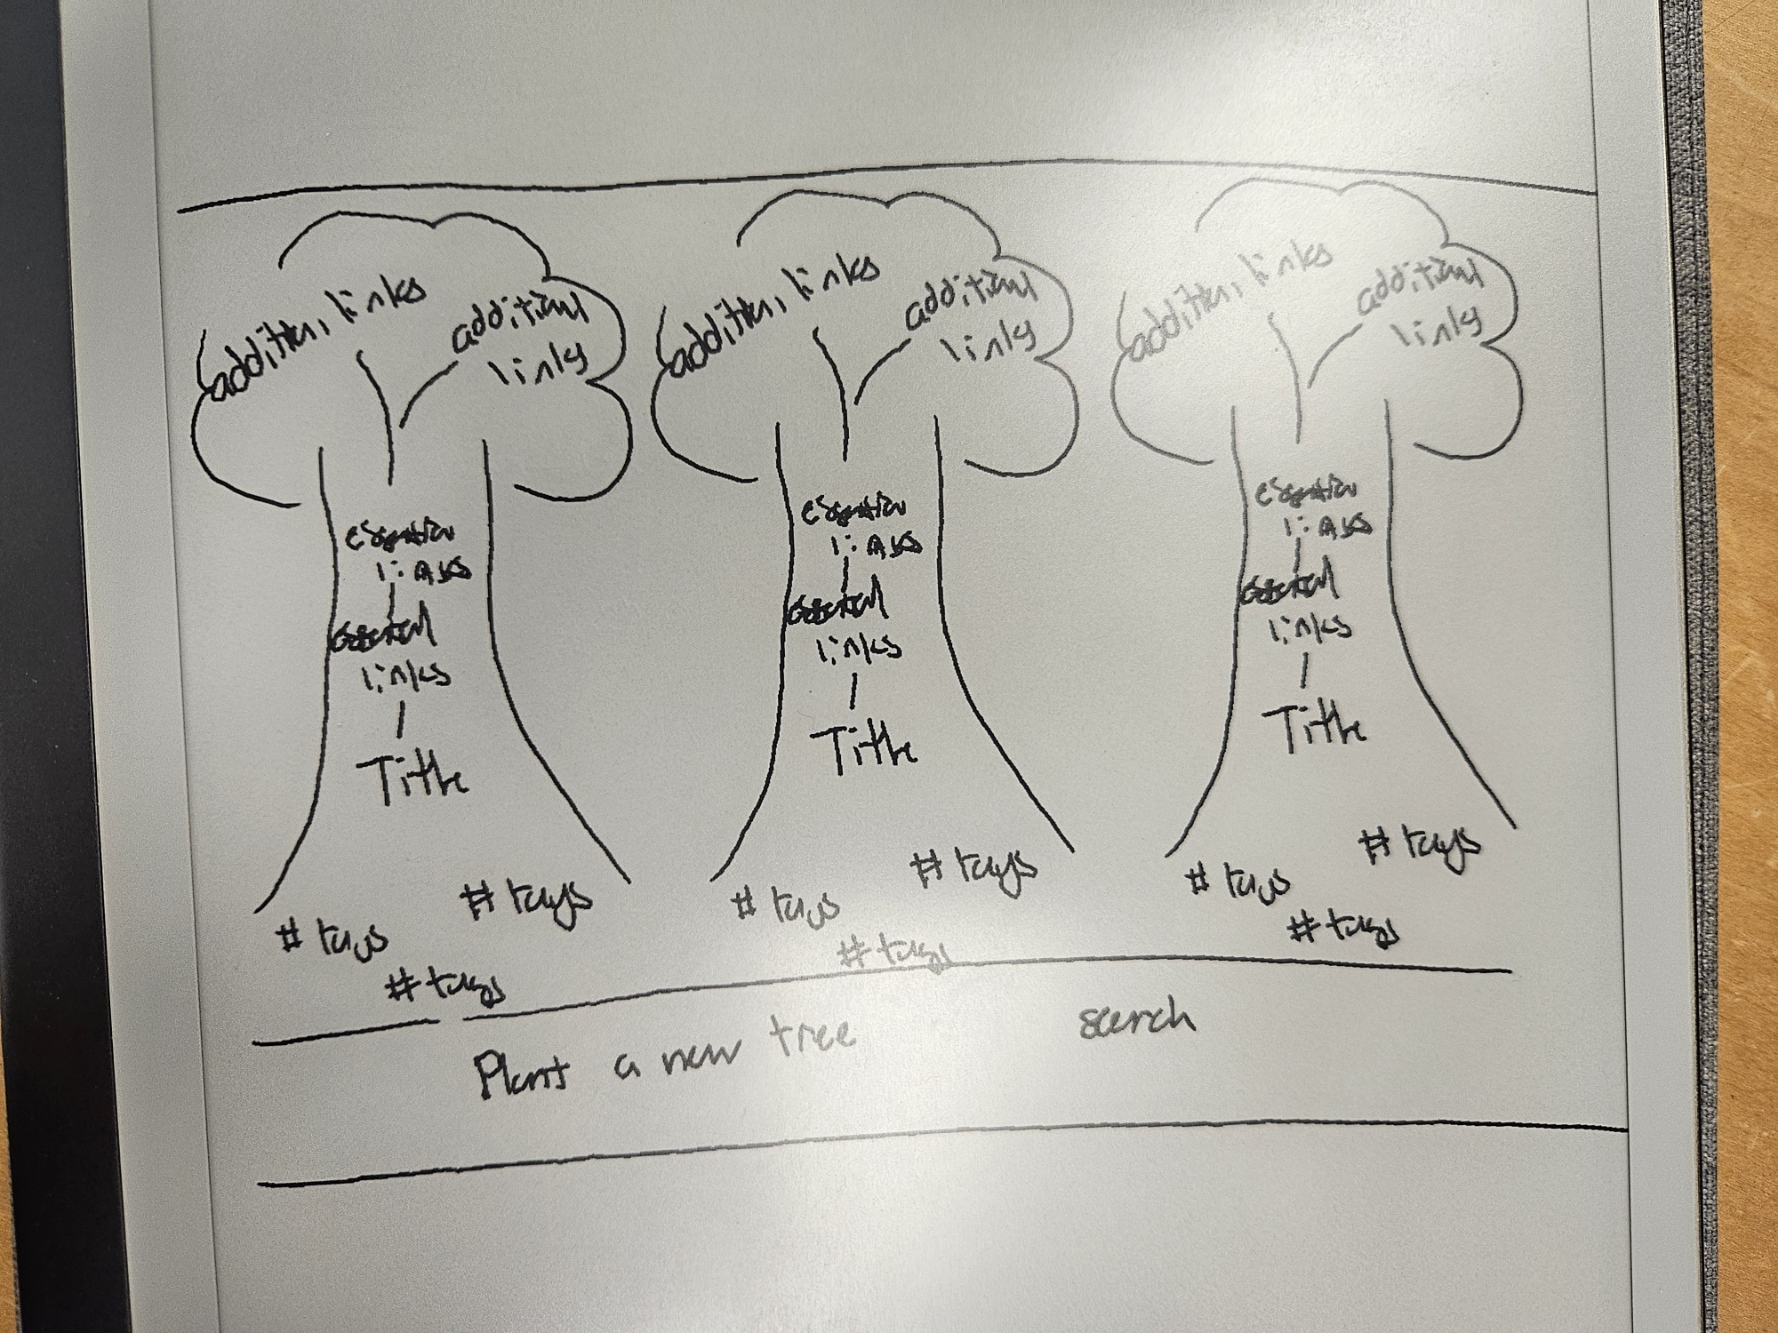 additional links
additional
links
essential
links
essential
links
Title
# tags
# tags
# tags
additional links
additional
links
essential
links
essential
links
Title
# tags
# tags
# tags
additional links
additional
links
essential
links
essential
links
Title
# tags
# tags
# tags
Plant a new tree
search